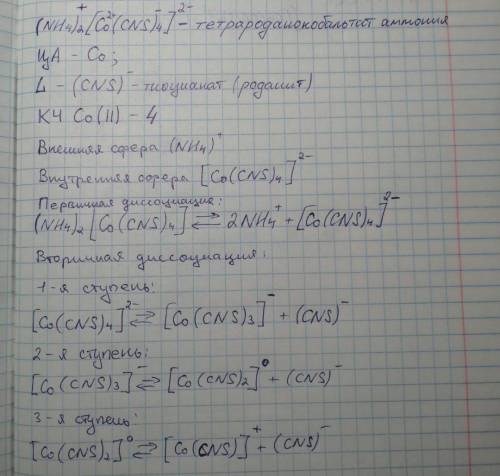 (NH4)2⁺[Co²⁺(CNS)4⁻]²⁻ – тетрароданокобальтат аммония
ЦА – Co;
L – (CNS)⁻ – тиоцианат (роданит)
КЧ Co(II) – 4
Внешняя сфера (NH4)⁺
Внутренняя сфера [Co(CNS)4]²⁻
Первичная диссоциация:
(NH4)2[Co(CNS)4] ⇄ 2NH4⁺ + [Co(CNS)4]²⁻
Вторичная диссоциация:
1-я ступень:
[Co(CNS)4]²⁻ ⇄ [Co(CNS)3]⁻ + (CNS)⁻
2-я ступень:
[Co(CNS)3]⁻ ⇄ [Co(CNS)2]⁰ + (CNS)⁻
3-я ступень:
[Co(CNS)2]⁰ ⇄ [Co(CNS)]⁺ + (CNS)⁻